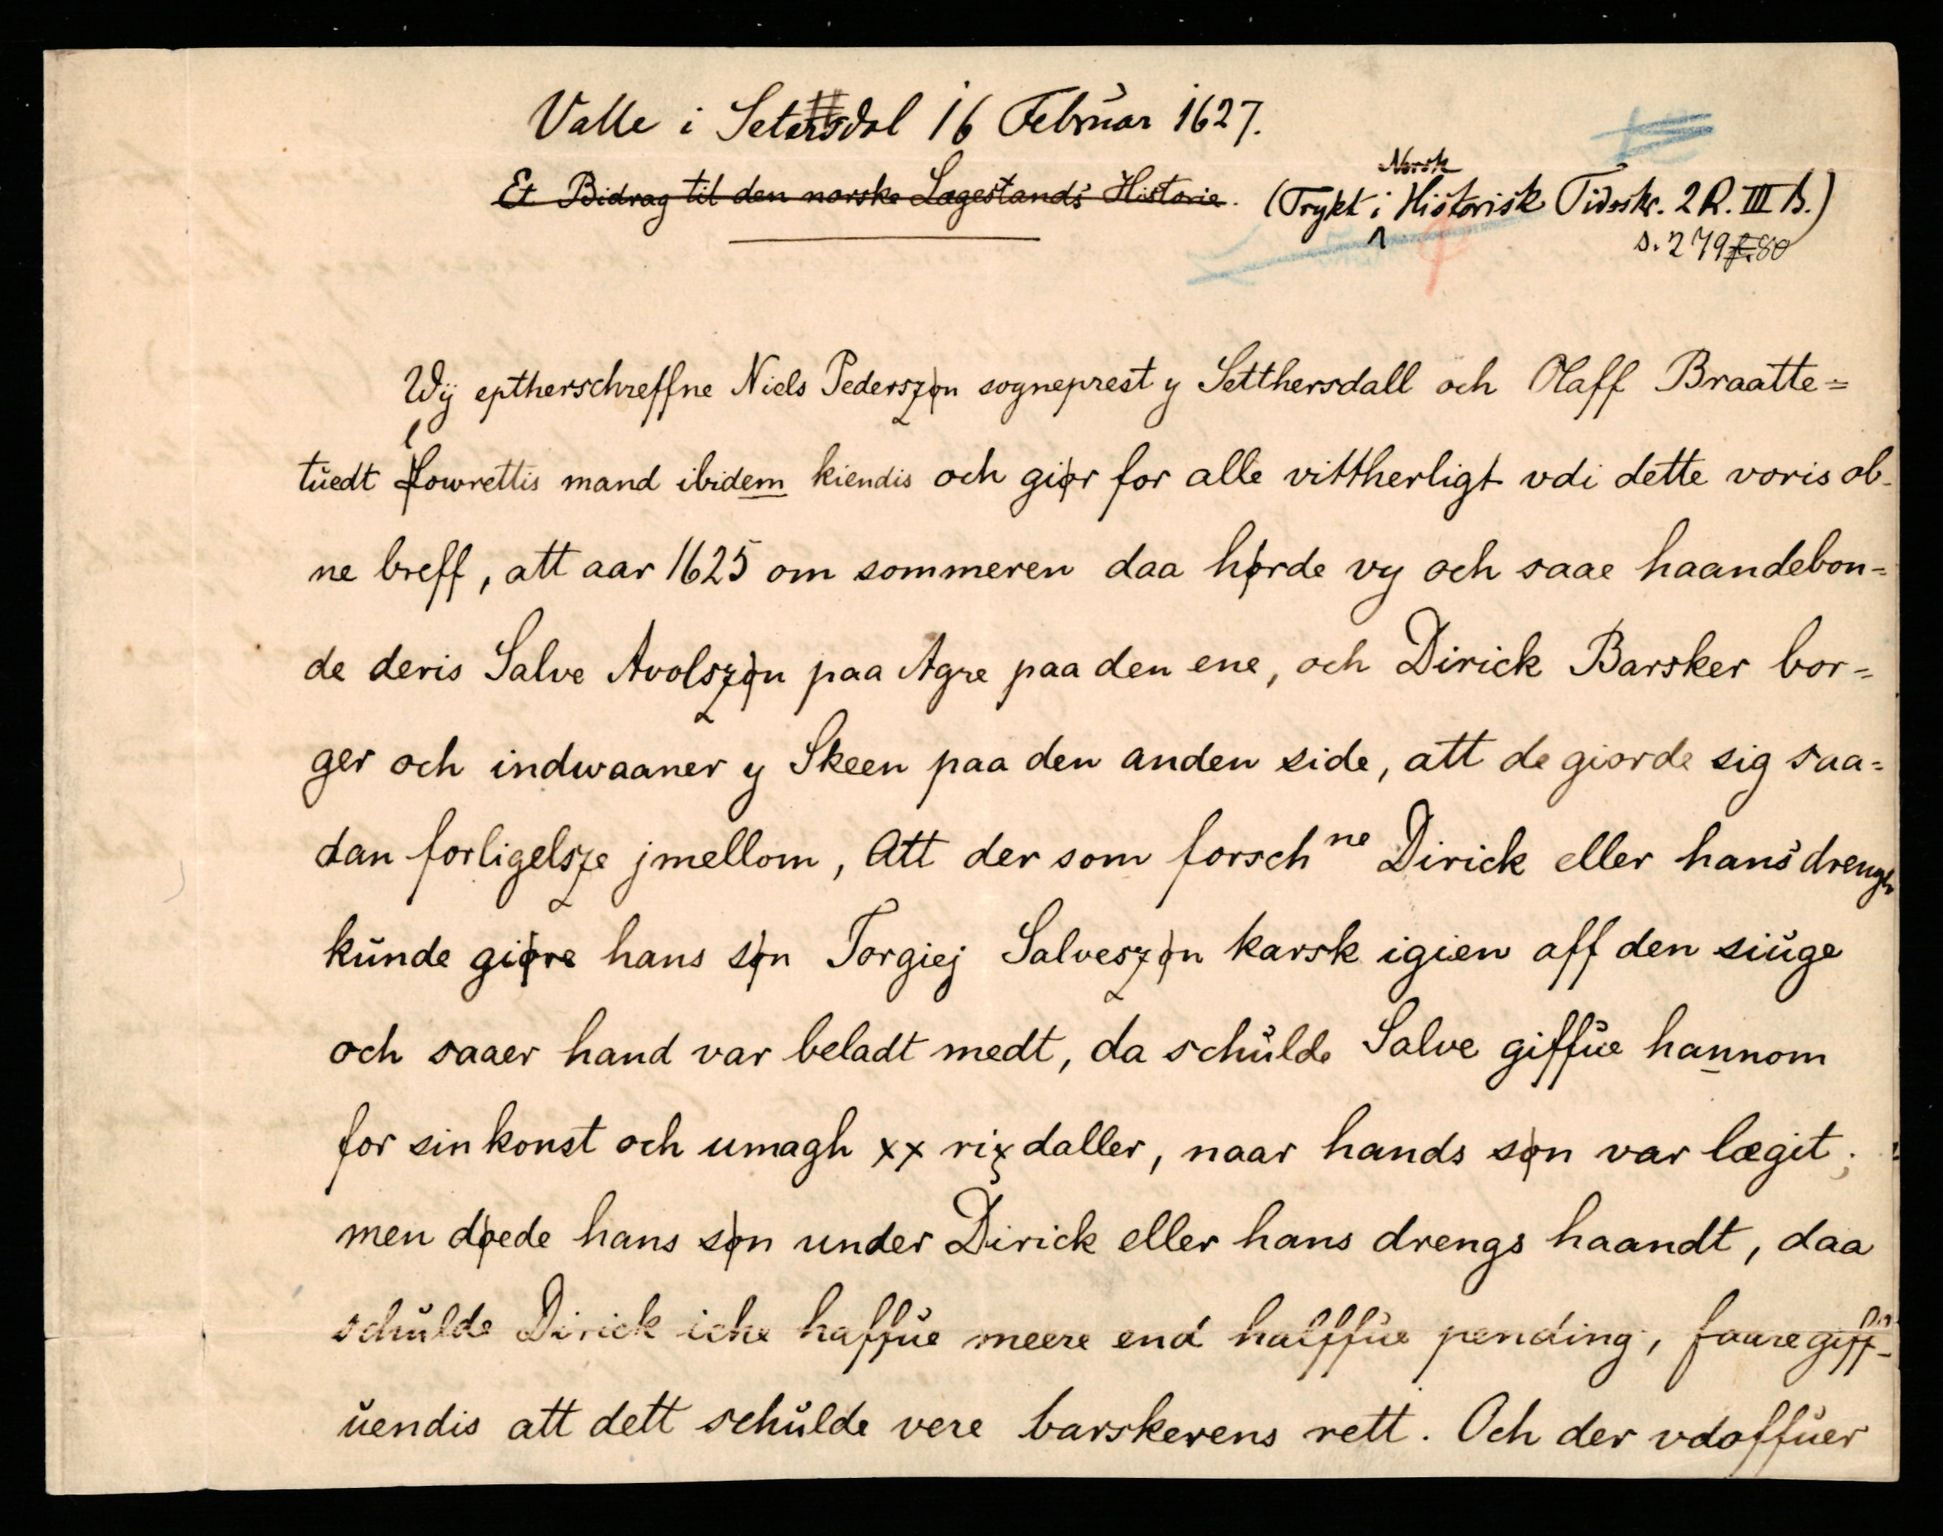 Valle i Setersdal 16 Februar 1627.
Et Bidrag til den norske Lægestands Historie. (Trykt i Norsk Historisk Tidsskr. 2 R. III B.)
s. 279 f. 80
Wÿ eptherschreffne Niels Pederszøn sogneprest y Setthersdall och Olaff Braatte=
tuedt lowrettis mand ibidem kiendis och giør for alle vittherligt vdi dette voris ob-
ne breff, att aar 1625 om sommeren daa hørde vy och saae haandebon=
de deris Salve Avolszøn paa Agre paa den ene, och Dirick Barsker bor=
ger och indwaaner y Skeen paa den anden side, att de giorde sig saa=
dan forligelsze jmellom, Att der som forschne Dirick eller hans drengh
kunde giøre hans søn Torgiej Salveszøn karsk igien aff den siuge
och saaer hand var beladt medt, da schulde Salve giffue hannom
for sin konst och umagh xx rixdaller, naar hands søn var lægit;
men døede hans søn under Dirick eller hans drengs haandt, daa
schulde Dirick iche haffue meere end halffue pending, faare giff-
uendis att dett schulde vere barskerens rett. Och der vdoffuer